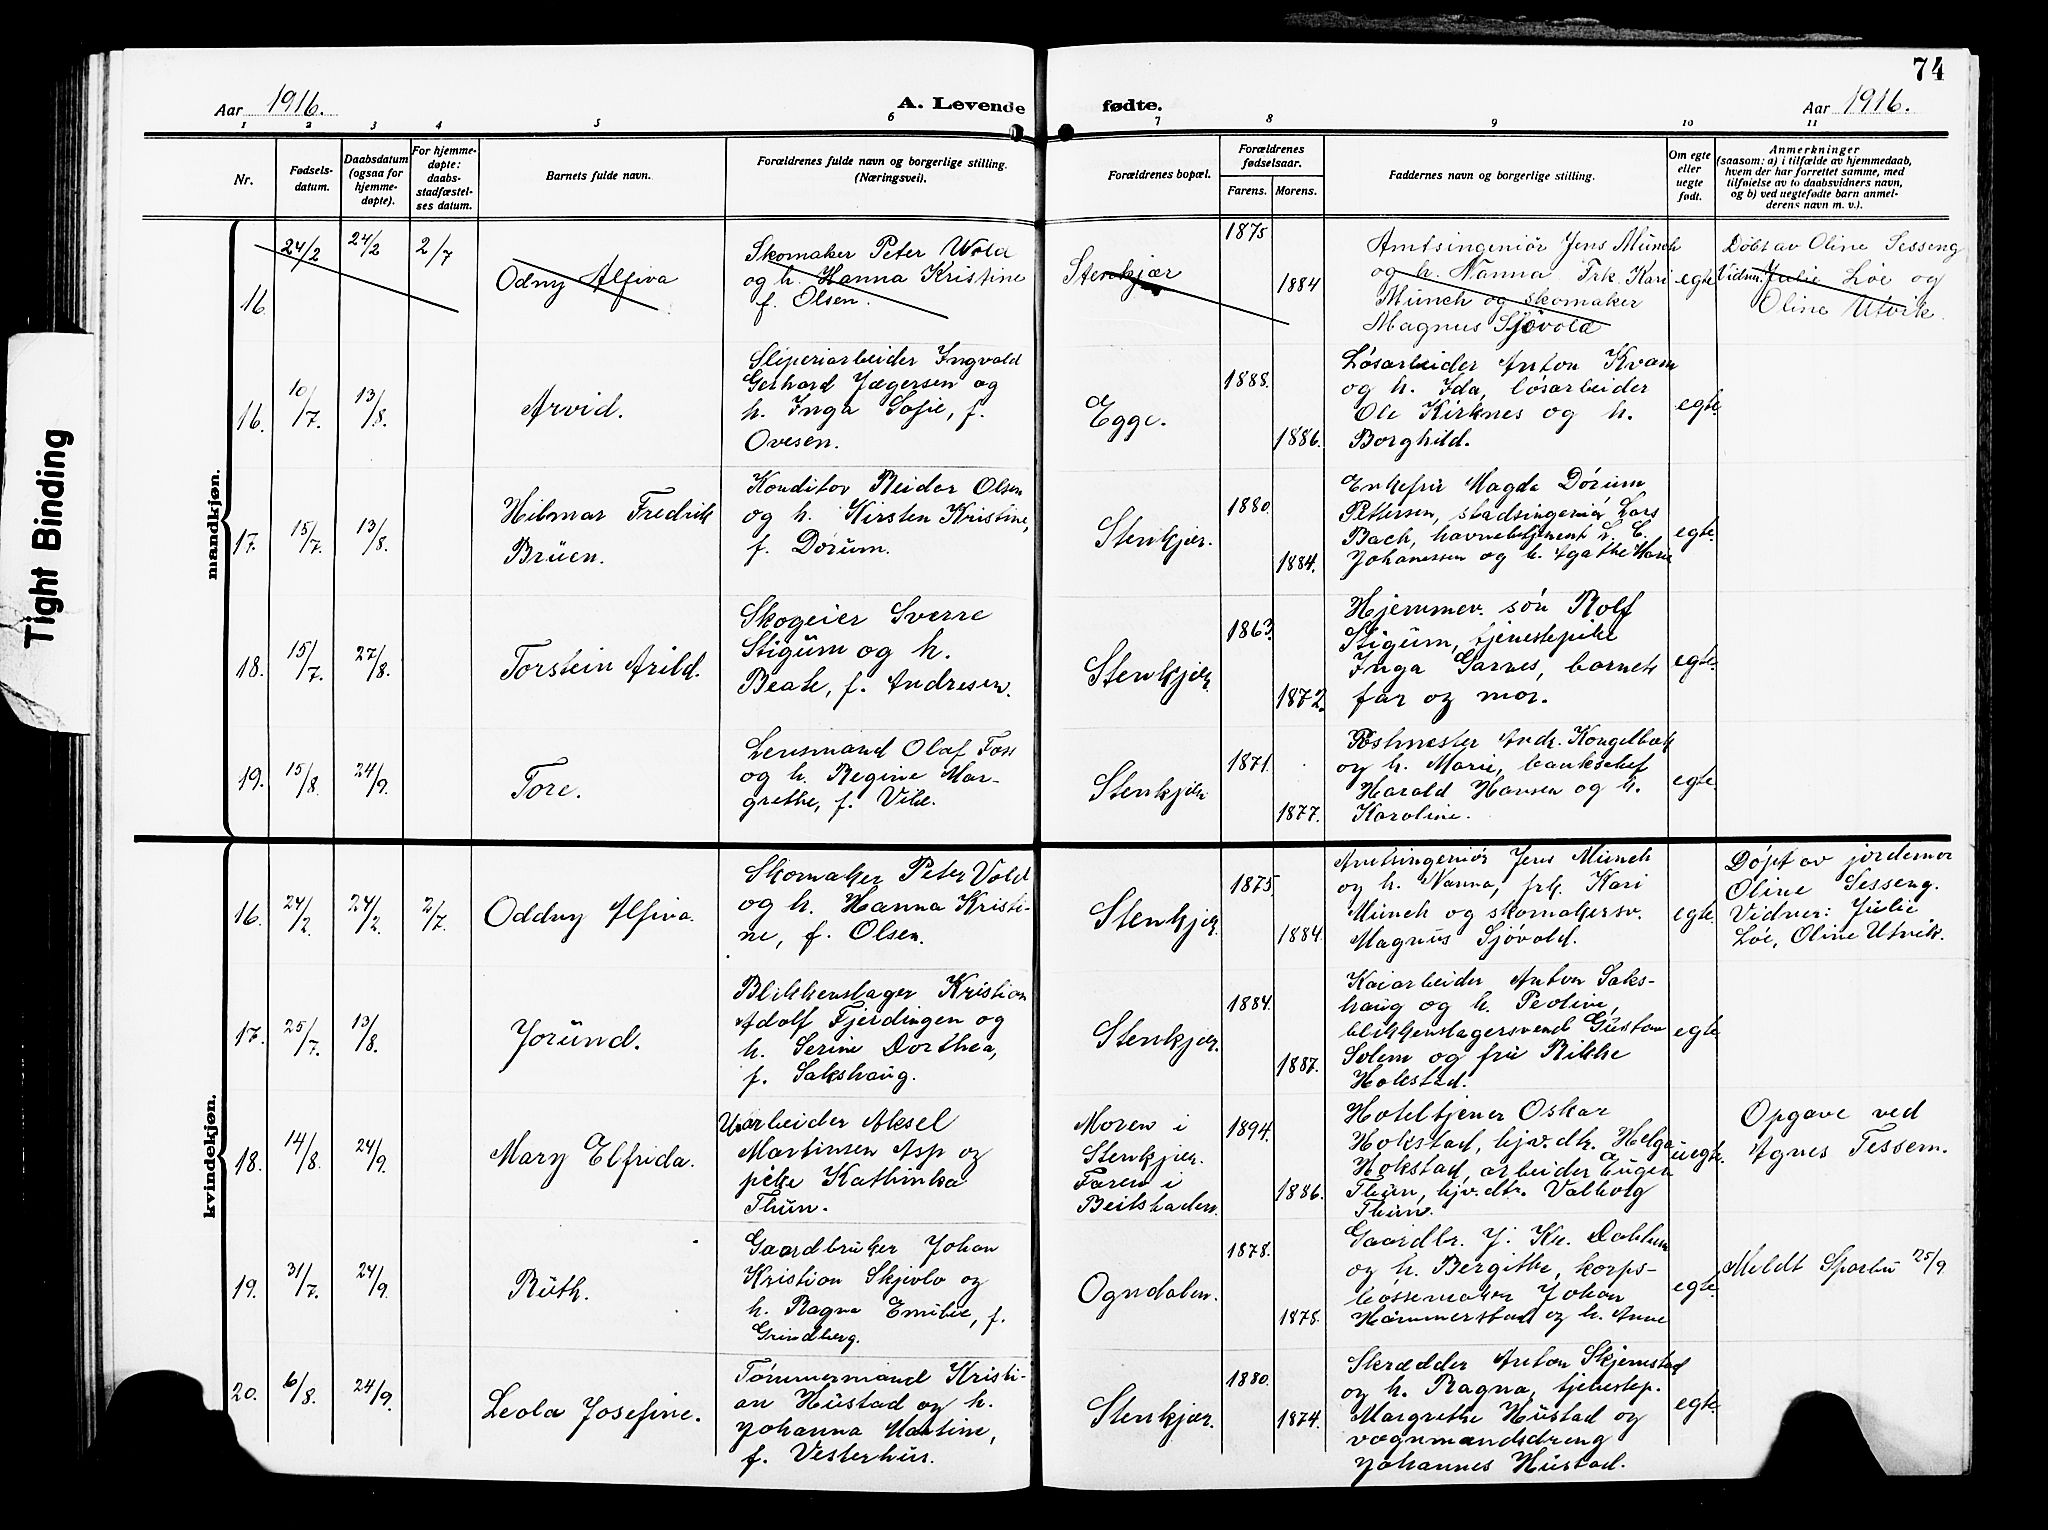 74
Aar 1916. A. Levende fødte. Aar 1916.
1 2 3 4 5 6 7 8 9 10 11
Nr.
Fødsels-
datum.
Daabsdatum
(ogsaa for
hjemme-
døpte).
For hjemme-
døpte:
daabs-
stadfæstel-
ses datum.
Barnets fulde navn.
Forældrenes fulde navn og borgerlige stilling.
(Næringsvei).
Forældrenes bopæl.
Forældrenes
fødselsaar.
Farens. Morens.
Faddernes navn og borgerlige stilling.
Om egte
eller
uegte
født.
Anmerkninger
(saasom: a) i tilfælde av hjemmedaab,
hvem der har forrettet samme, med
tilføielse av to daabsvidners navn,
og b) ved uegtefødte barn anmel-
derens navn m. v.).
Tight Binding
mandkjøn.
16. 24/2 24/2 2/7
Odny Alfiva
Skomaker Peter Wold
og h. Hanna Kristine
f. Olsen.
Stenkjær
1875
1884
Amtsingeniør Jens Münch
og h. Nanna Frk. Kari
Münch og skomaker
Magnus Sjövold
egte
Döbt av Oline Sesseng
Vidn. Julie Löe og
Oline Utvik.
16. 10/7. 13/8.
Arvid.
Sliperiarbeider Ingvald
Gerhard Jægersen og
h. Inga Sofie, f.
Ovesen.
Egge.
1888.
1886.
Løsarbeider Anton Kvam
og h. Ida, løsarbeider
Ole Kirknes og h.
Borghild.
egte.
17. 15/7. 13/8.
Hilmar Fredrik
Brüen.
Konditor Reidar Olsen
og h. Kirsten Kristine,
f. Dørum.
Stenkjær.
1880.
1884.
Enkefru Magda Dørum
Pettersen, stadsingeniør Lars
Bach, havnebetjent L. C.
Johanessen og h. Agathe Marie
egte.
18. 15/7. 27/8.
Torstein Arild.
Skogeier Sverre
Stigüm og h.
Beate, f. Andresen.
Stenkjær.
1863.
1872.
Hjemmev. søn Rolf
Stigüm, tjenestepike
Inga Garnes, barnets
far og mor.
egte.
19. 15/8. 24/9.
Tore.
Lensmand Olaf Foss
og h. Regine Mar-
grethe, f. Vibe.
Stenkjær.
1871.
1877.
Postmester Andr. Kongelbæk
og h. Marie, bankchef
Harald Hansen og h.
Karoline.
egte.
kvindekjøn.
16. 24/2. 24/2. 2/7.
Oddny Alfiva.
Skomaker Peter Vold
og h. Hanna Kristi-
ne, f. Olsen.
Stenkjær.
1875.
1884.
Amtsingeniør Jens Münch
og h. Nanna, frk. Kari
Münch og skomakersv.
Magnus Sjövold.
egte.
Döpt av jordemor
Oline Sesseng.
Vidner: Julie
Löe, Oline Utvik.
17. 25/7. 13/8.
Joründ.
Blikkenslager Kristian
Adolf Fjerdingen og
h. Serine Dorthea,
f. Sakshaug.
Stenkjær.
1884.
1887.
Kaiarbeider Anton Saks-
haug og h. Peoline,
blikkenslagersvend Güstav
Solem og frü Rikke
Hokstad.
egte.
18. 14/8. 24/9.
Mary Elfrida.
arbeider Aksel
Martinsen Asp og
pike Kathinka
Thün.
Moren i
Stenkjær.
Faren i
Beitstaden.
1894.
1886.
Hoteltjener Oskar
Hokstad, hjv.dtr. Helga
Hokstad, arbeider Eugen
Thün, hjv.dtr. Valborg
Thün.
uegte.
Opgave ved
Agnes Tessem.
19. 31/7. 24/9.
Rüth.
Gaardbruker Johan
Kristian Skjevlo og
h. Ragna Emilie, f.
Grindberg.
Ogndalen.
1878.
1878.
Gaardbr. J. Kr. Dahlum
og h. Bergithe, korps-
bøssemaker Johan
Hammerstad og h. Anne
egte.
Meldt Sparbu 25/9
20. 6/8. 24/9.
Leola Josefine.
Tømmermand Kristi-
an Hüstad og h.
Johanna Martine,
f. Vesterhus.
Stenkjær.
1880.
1874.
Skrædder Anton Skjemstad
og h. Ragna, tjenestep.
Margrethe Hüstad og
vognmandsdreng
Johannes Hüstad.
egte.